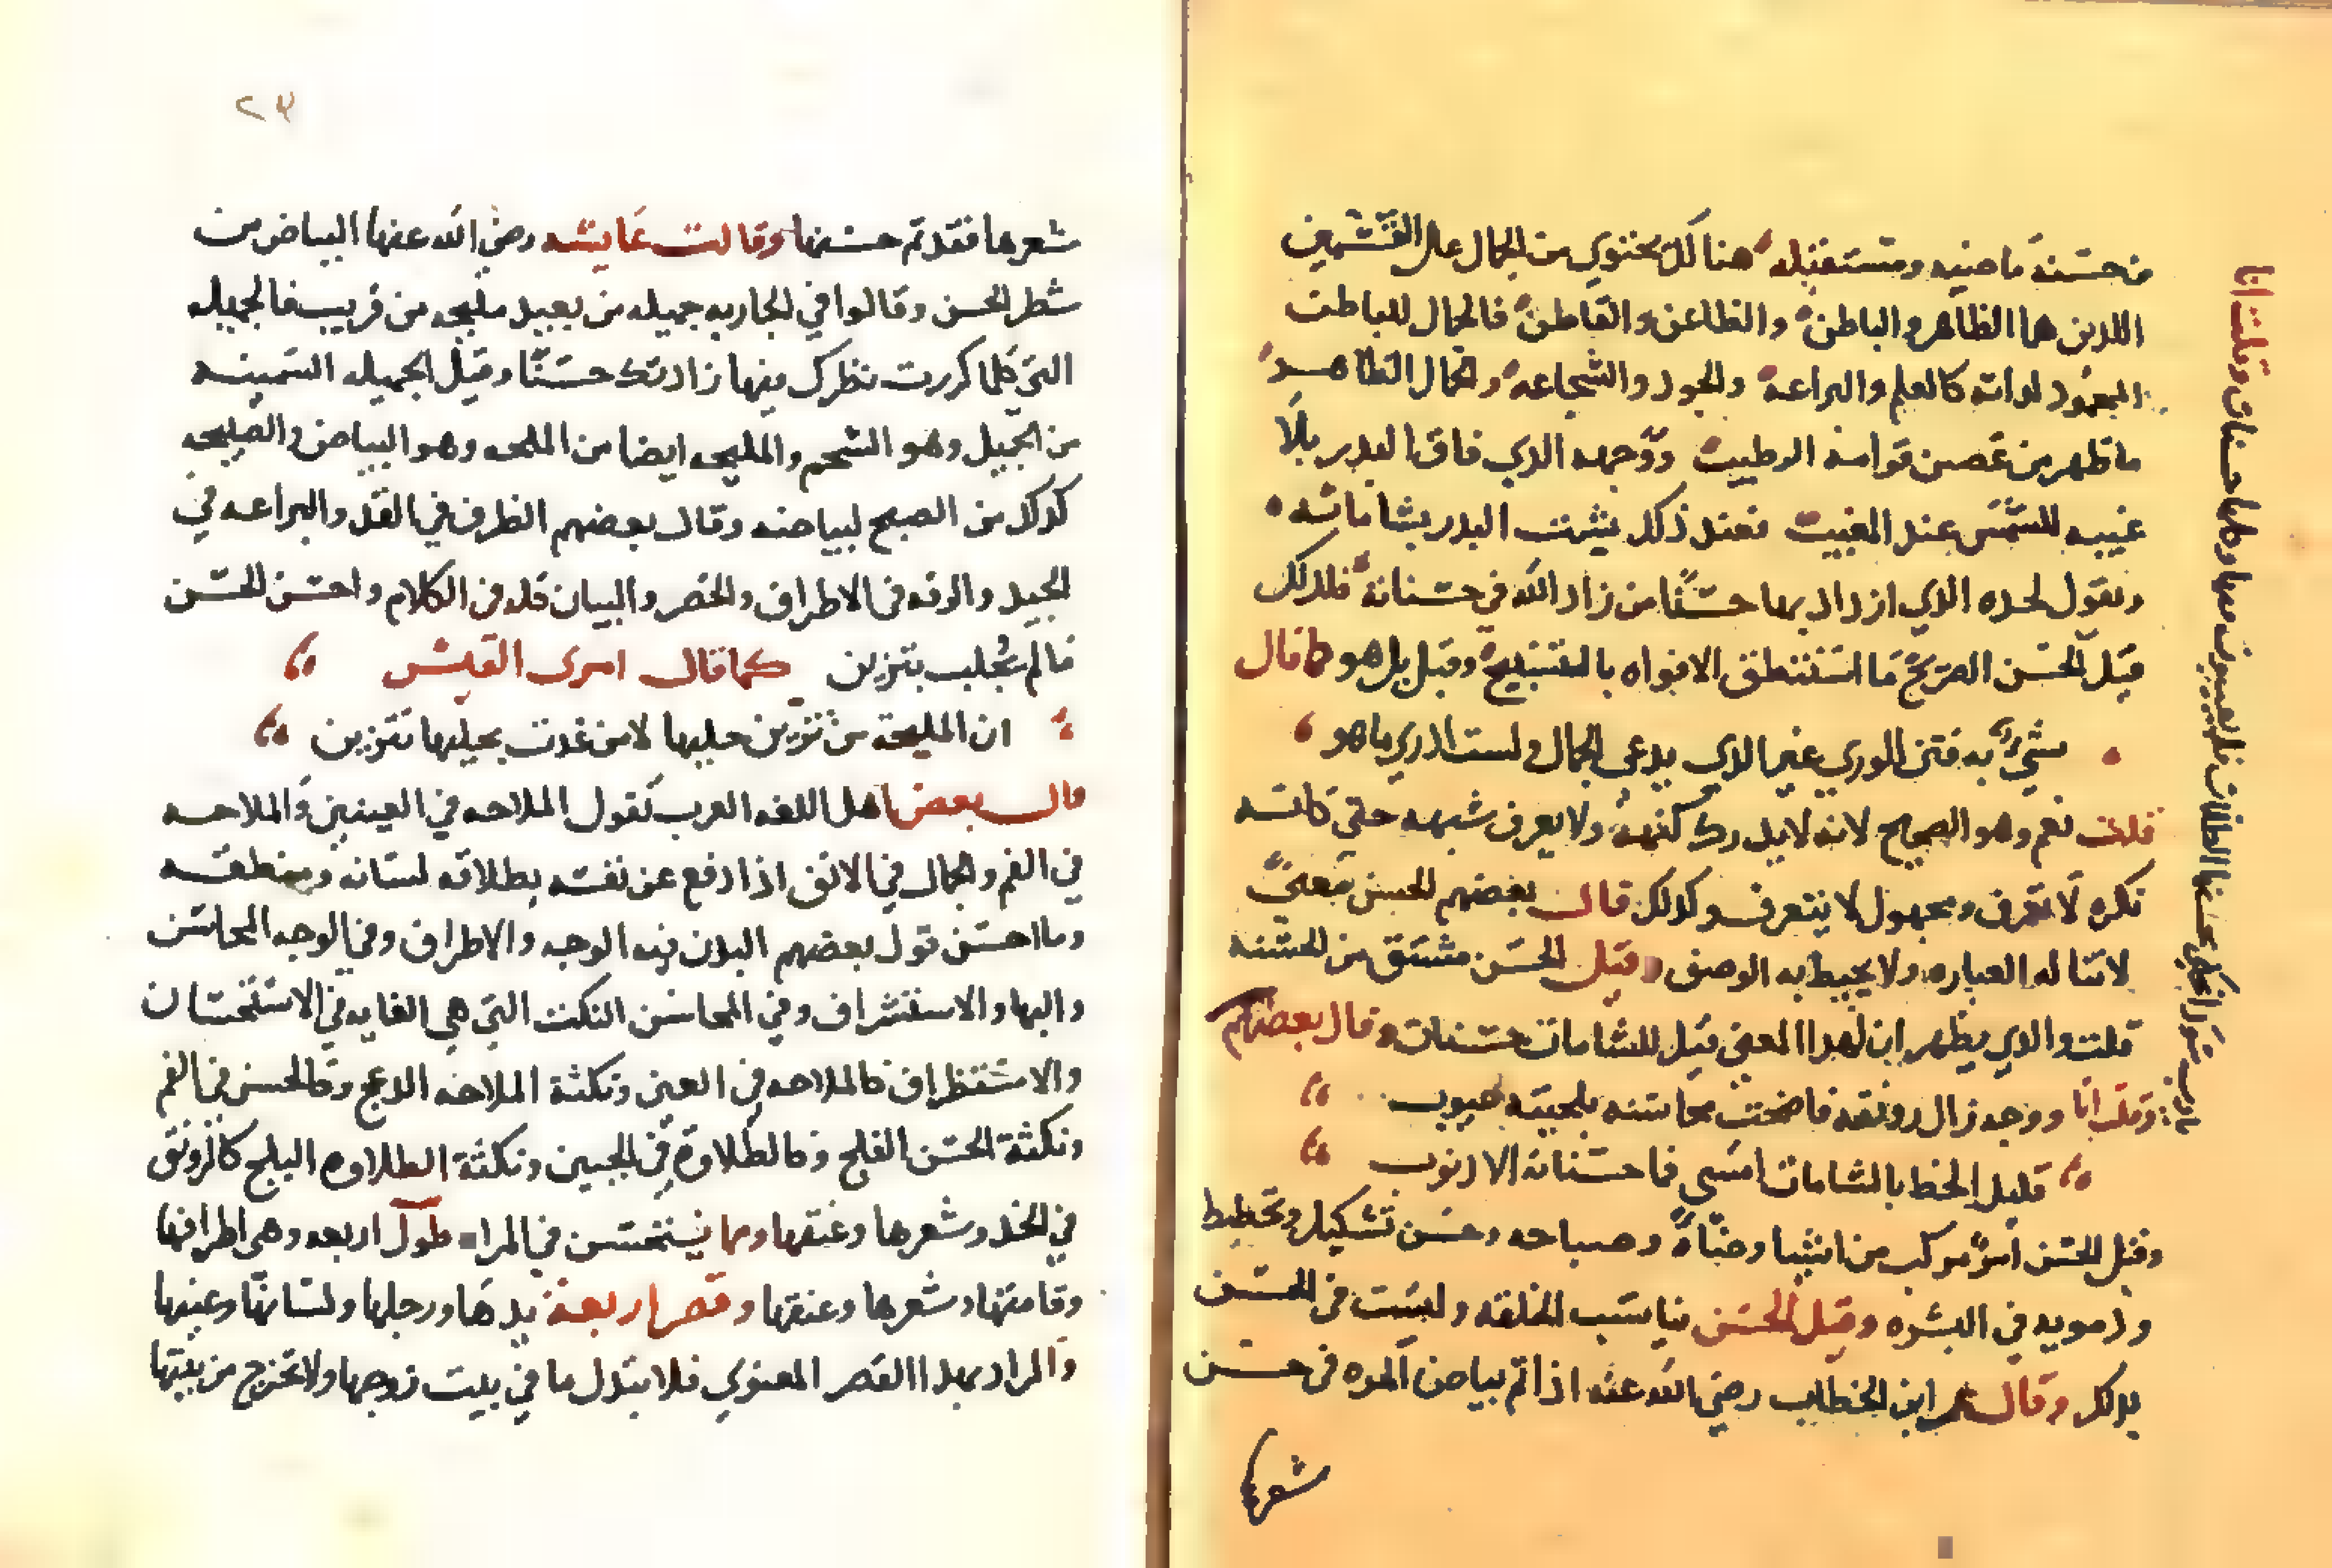 من حسنه ماضيه ومستقبله هنالك يحتوي من الجمال على القسمين
اللدين هما الظاهر والباطن والظاعن والقاطن فالجمال الباطن
المحمود لداته كالعلم والبراعه والجود والشجاعه والجمال الظاهر
ما ظهر من غصن قوامه الرطيب ووجهه الدي فاق البدر بلا
عيبه للشمس عند المغيب فعند ذلك يشرف البدر بشاماته
ويقول لخده الدي ازداد بها حسنًا من زاد الله في حسناته فلدلك
قيل الحسن الصريح ما استنطق الافواه بالتسبيح وقيل بل هو كما قال
شيء به فتن الوري غير الدي يدعى الجمال ولست ادري ما هو
قلت نعم وهو الصحيح لانه لا يدرك كنهه ولا يعرف شبهه حتي كانه
نكره لا تعرف ومجهول لا يتعرف وكدلك قال بعضهم الحسن معنى
لا تناله العباره ولا يحيط به الوصف وقيل الحسن مشتق من الحسنه
قلت والدي يظهر ان لهدا المعنى قيل للشامات حسنات وقال بعضهم
وقلت انا ووجه زال رونقه فاضحت محاسنه بلحيته عيوب
قليل الحظ بالشامات امسي فما حسناته الا دنوب
وقيل الحسن امر مركب من اشيا وضاة وصباحه وحسن تشكيل وتخطيط
ودمويه في البشره وقيل الحسن تناسب الخلقه وليست في الحسن
بدلك وقال عمر ابن الخطاب رضي الله عنه اذا تم بياض المره في حسن
شعرها
وقلت انا
٢٣
شعرها فقد تم حسنها وقالت عايشه رضي الله عنها البياض من
شطر الحسن وقالوا في الجاريه جميله من بعيد مليحه من قريب فالجميله
التي كلما كررت نظرك فيها زادتك حسنًا وقيل الجميله السمينه
من الجميل وهو الشحم والمليحه ايضا من الملحه وهو البياض والصبيحه
كدلك من الصبح لبياضه وقال بعضهم الظرف في القد والبراعه في
الجيد والرقه في الاطراف والخصر والبيان قله في الكلام واحسن الحسن
ما لم يجلب بتزين كما قال امرى القيس
ان المليحة من تزين حليها لا من غدت بحليها تتزين
قال بعض اهل اللغه العرب تقول الملاحه في العينين والملاحه
في الفم والجمال في الانف اذا رفع عن نفسه بطلاقه لسانه ومنطقه
وما احسن قول بعضهم البدن فيه الوجه والاطراف وفي الوجه المحاسن
والبها والاستشراف وفي المحاسن النكت التي هي الغايه في الاستحسان
والاستظراف كالملاحه في العين ونكتة الملاحه الدعج وكالحسن في الفم
ونكتة الحسن الفلج وكالطلاوة في الجبين ونكتة الطلاوه البلج كالرونق
في الخد وشعرها وعنقها ومما يستحسن في المراه طول اربعه وهي اطرافها
وقامتها وشعرها وعنقها وقصر اربعة يدها ورجلها ولسانها وعينها
والمراد بهدا القصر المعنوي فلا تبدل ما في بيت زوجها ولا تخرج من بيتها